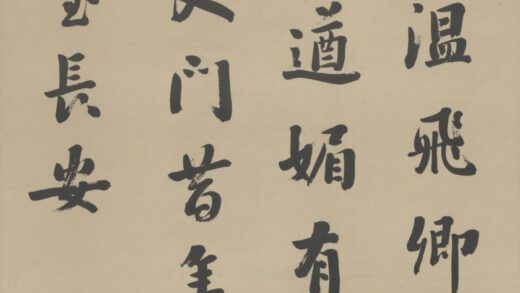 温飛卿
遒媚有
門昔年
長安